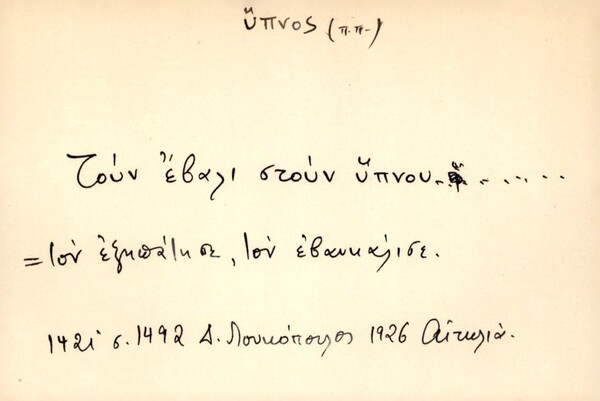 ὕπνος (π.π-)
Τοὺν ἔβαλι στοὺν ὕπνου........
= τὸν ἐξηπάτησε, τὸν ἐβαυκάλισε.
1421 σ. 1492 Δ. Λουκόπουλος 1926 Αἰτωλία.